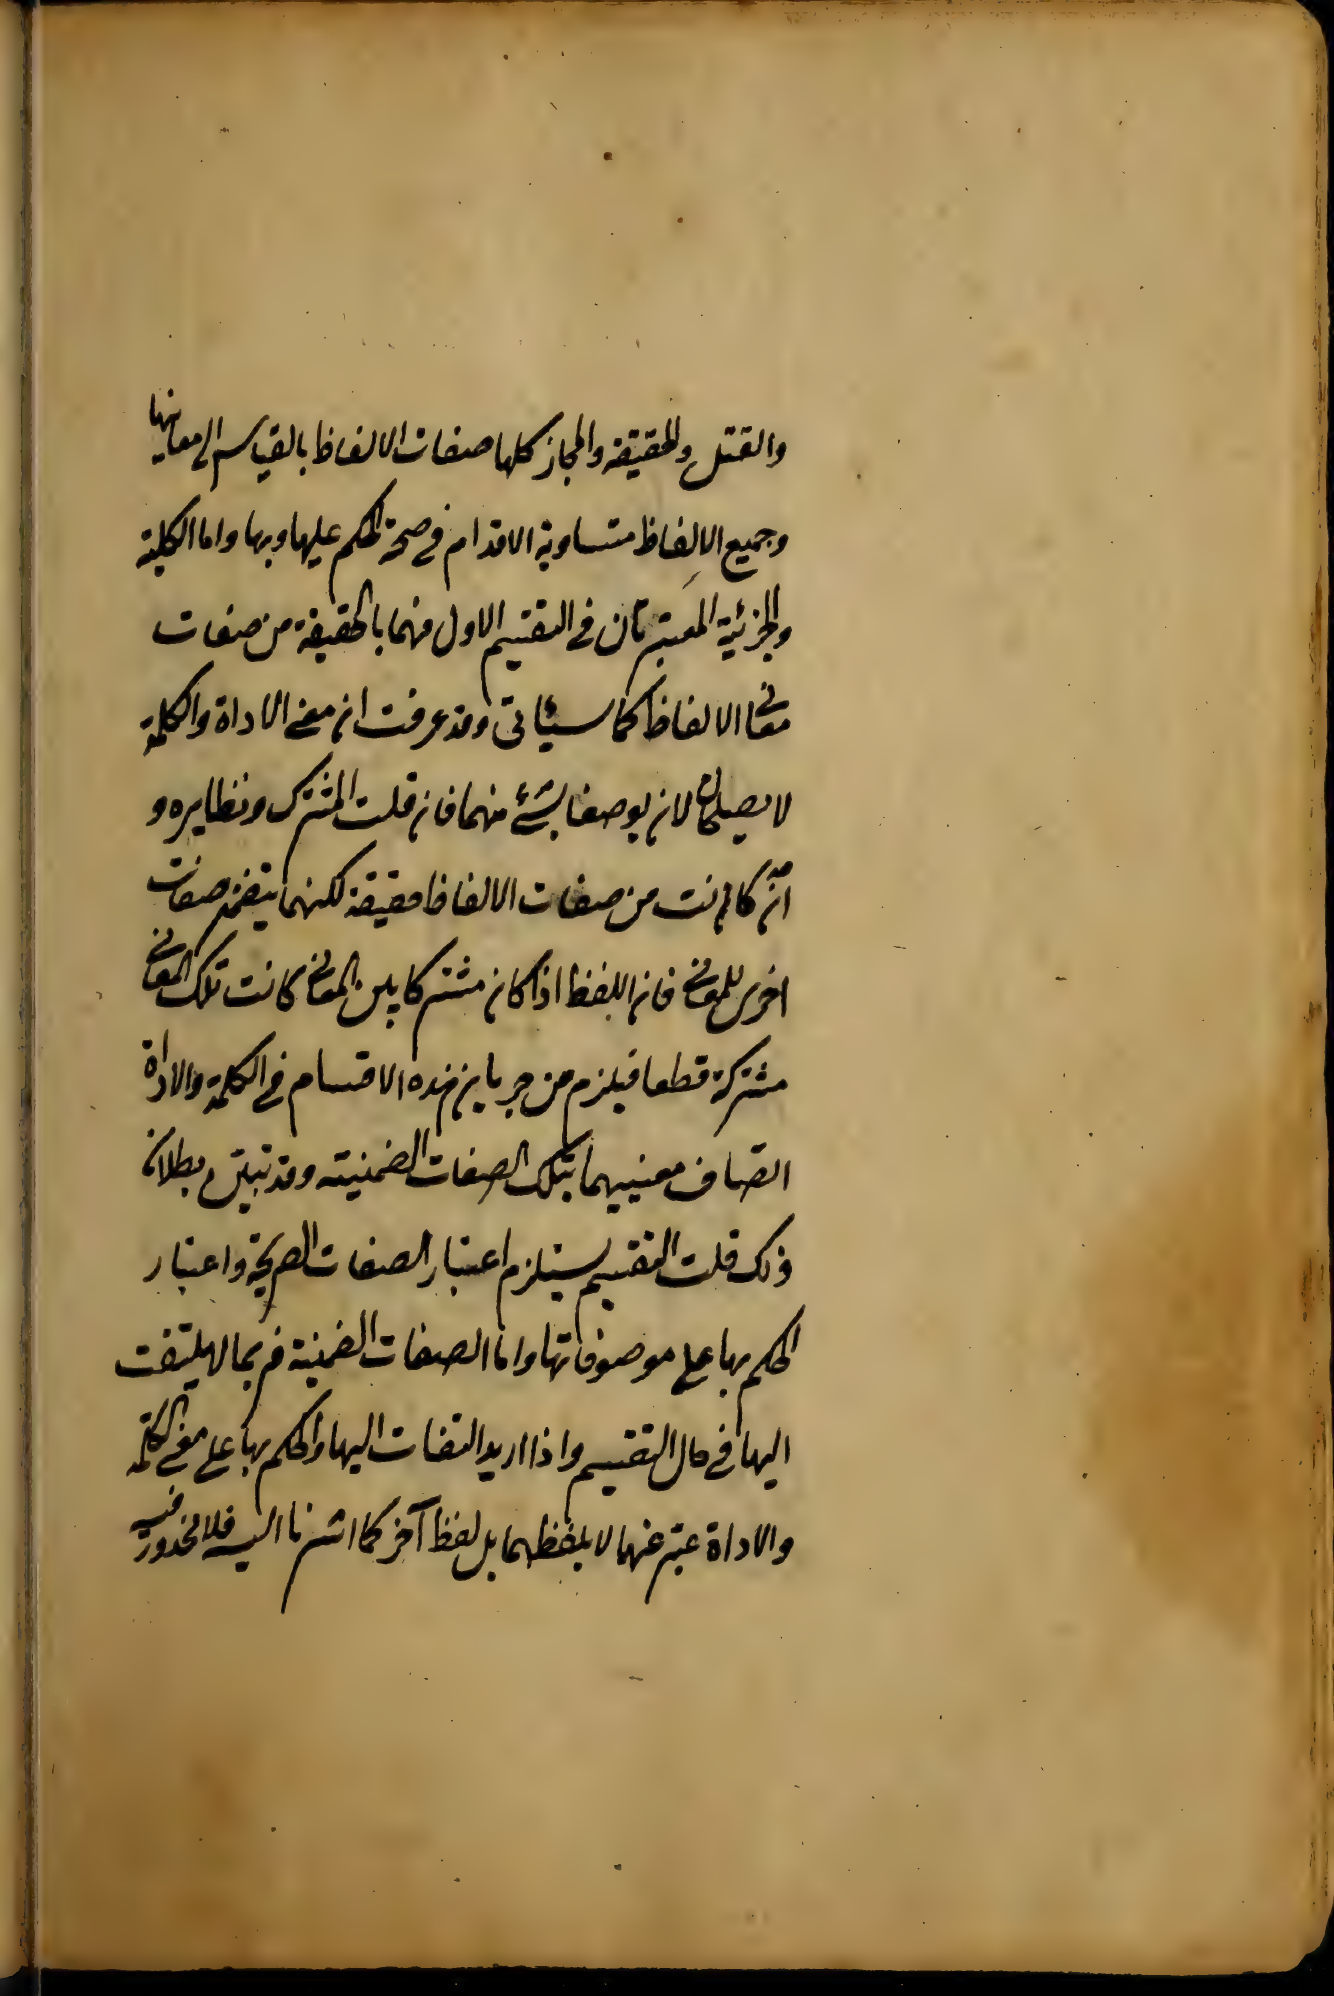 والنقل والحقيقة والمجاز كلها صفات الالفاظ بالقياس الى معانيها
وجميع الالفاظ متساوية الاقدام في صحة الحكم عليها وبها واما الكلية
والجزئية المعتبرتان في التقسيم الاول فهما بالحقيقة من صفات
معاني الالفاظ كما سيأتي وقد عرفت ان معنى الاداة والكلمة
لا يصلحان لان يوصفا بشئ منهما فان قلت المشترك ونظايره و
ان كانت من صفات الالفاظ حقيقة لكنها يتضمن صفات
اخرى للمعاني فان اللفظ اذا كان مشتركا بين المعاني كانت تلك المعاني
مشتركة قطعا فيلزم من جريان هذه الاقسام في الكلمة والاداة
اتصاف معنييهما بتلك الصفات الضمنية وقد تبين بطلان
ذلك قلت التقسيم يستلزم اعتبار الصفات الصريحة واعتبار
الحكم بها على موصوفاتها واما الصفات الضمنية فربما لا يلتفت
اليها في حال التقسيم واذا اريد التفات اليها والحكم بها على معنى الكلمة
والاداة عبّر عنهما لا بلفظهما بل لفظ آخر كما اشرنا اليه فلا محذور فيه